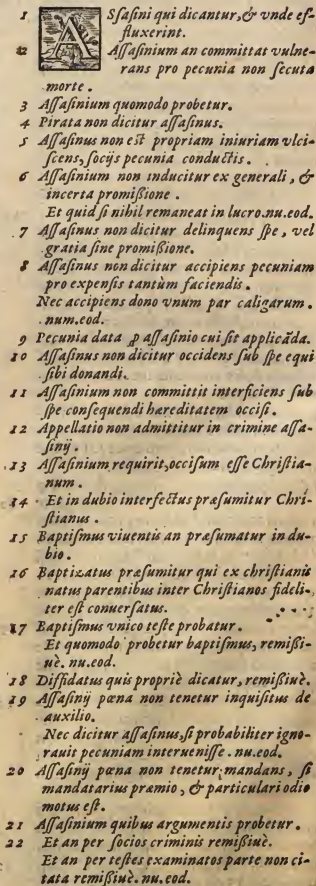 1 ASſaſini qui dicantur, & vnde ef-
fluxerint.
2 Aſſaſinium an committat vulne-
rans pro pecunia non ſecuta
morte.
3 Aſſaſinium quomodo probetur.
4 Pirata non dicitur aſſaſinus.
5 Aſſaſinus non eſt propriam iniuriam vlci-
ſcens, ſocijs pecunia conductis.
6 Aſſaſinium non inducitur ex generali, &
incerta promißione.
Et quid ſi nihil remaneat in lucro. nu. eod.
7 Aſſaſinus non dicitur delinquens ſpe, vel
gratia ſine promißione.
8 Aſſaſinus non dicitur accipiens pecuniam
pro expenſis tantùm faciendis.
Nec accipiens dono vnum par caligarum.
num. eod.
9 Pecunia data ꝓ aſſaſinio cui ſit applicāda.
10 Aſſaſinus non dicitur occidens ſub ſpe equi
ſibi donandi.
11 Aſſaſinium non committit interficiens ſub
ſpe conſequendi hæreditatem occiſi.
12 Appellatio non admittitur in crimine aſſa-
ſinij.
13 Aſſaſinium requirit, occiſum eſſe Chriſtia-
num.
14 Et in dubio interfectus præſumitur Chri-
ſtianus.
15 Baptiſmus viuentis an præſumatur in du-
bio.
16 Baptizatus præſumitur qui ex christianis
natus parentibus inter Chriſtianos fideli-
ter eſt conuerſatus.
17 Baptiſmus vnico teſte probatur.
Et quomodo probetur baptiſmus, remißi-
uè. nu. eod.
18 Diffidatus quis propriè dicatur, remißiuè.
19 Aſſaſinij pœna non tenetur inquiſitus de
auxilio.
Nec dicitur aſſaſinus, ſi probabiliter igno-
rauit pecuniam interueniſſe. nu. eod.
20 Aſſaſinij pœna non tenetur mandans, ſi
mandatarius præmio, & particulari odio
motus eſt.
21 Aſſaſinium quibus argumentis probetur.
22 Et an per ſocios criminis remißiuè.
Et an per teſtes examinatos parte non ci-
tata remißiuè. nu. eod.